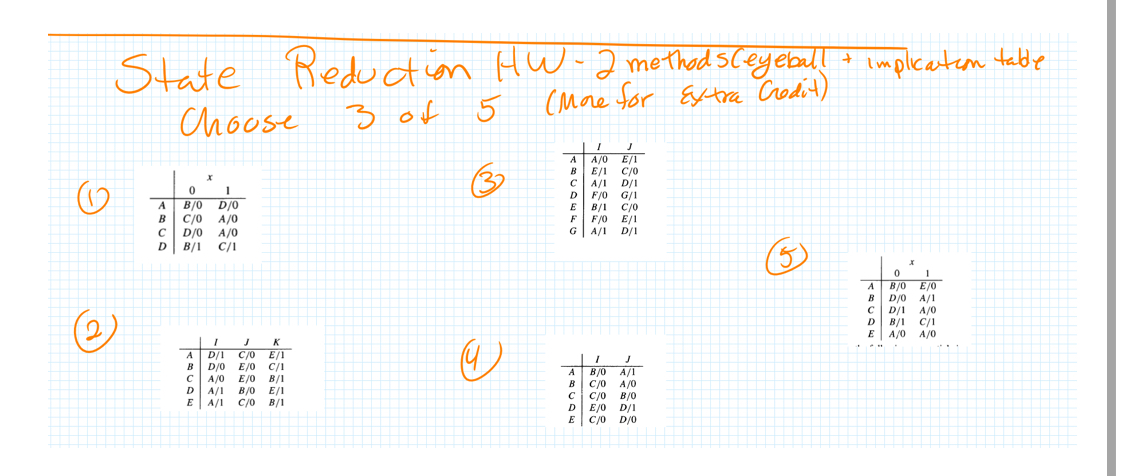 State Reduction HW - 2 methods (eyeball + implication table
Choose 3 of 5 (More for Extra Credit)
①
x
0 1
A B/0 D/0
B C/0 A/0
C D/0 A/0
D B/1 C/1
③
I J
A A/0 E/1
B E/1 C/0
C A/1 D/1
D F/0 G/1
E B/1 C/0
F F/0 E/1
G A/1 D/1
⑤
x
0 1
A B/0 E/0
B D/0 A/1
C D/1 A/0
D B/1 C/1
E A/0 A/0
②
I J K
A D/1 C/0 E/1
B D/0 E/0 C/1
C A/0 E/0 B/1
D A/1 B/0 E/1
E A/1 C/0 B/1
④
I J
A B/0 A/1
B C/0 A/0
C C/0 B/0
D E/0 D/1
E C/0 D/0